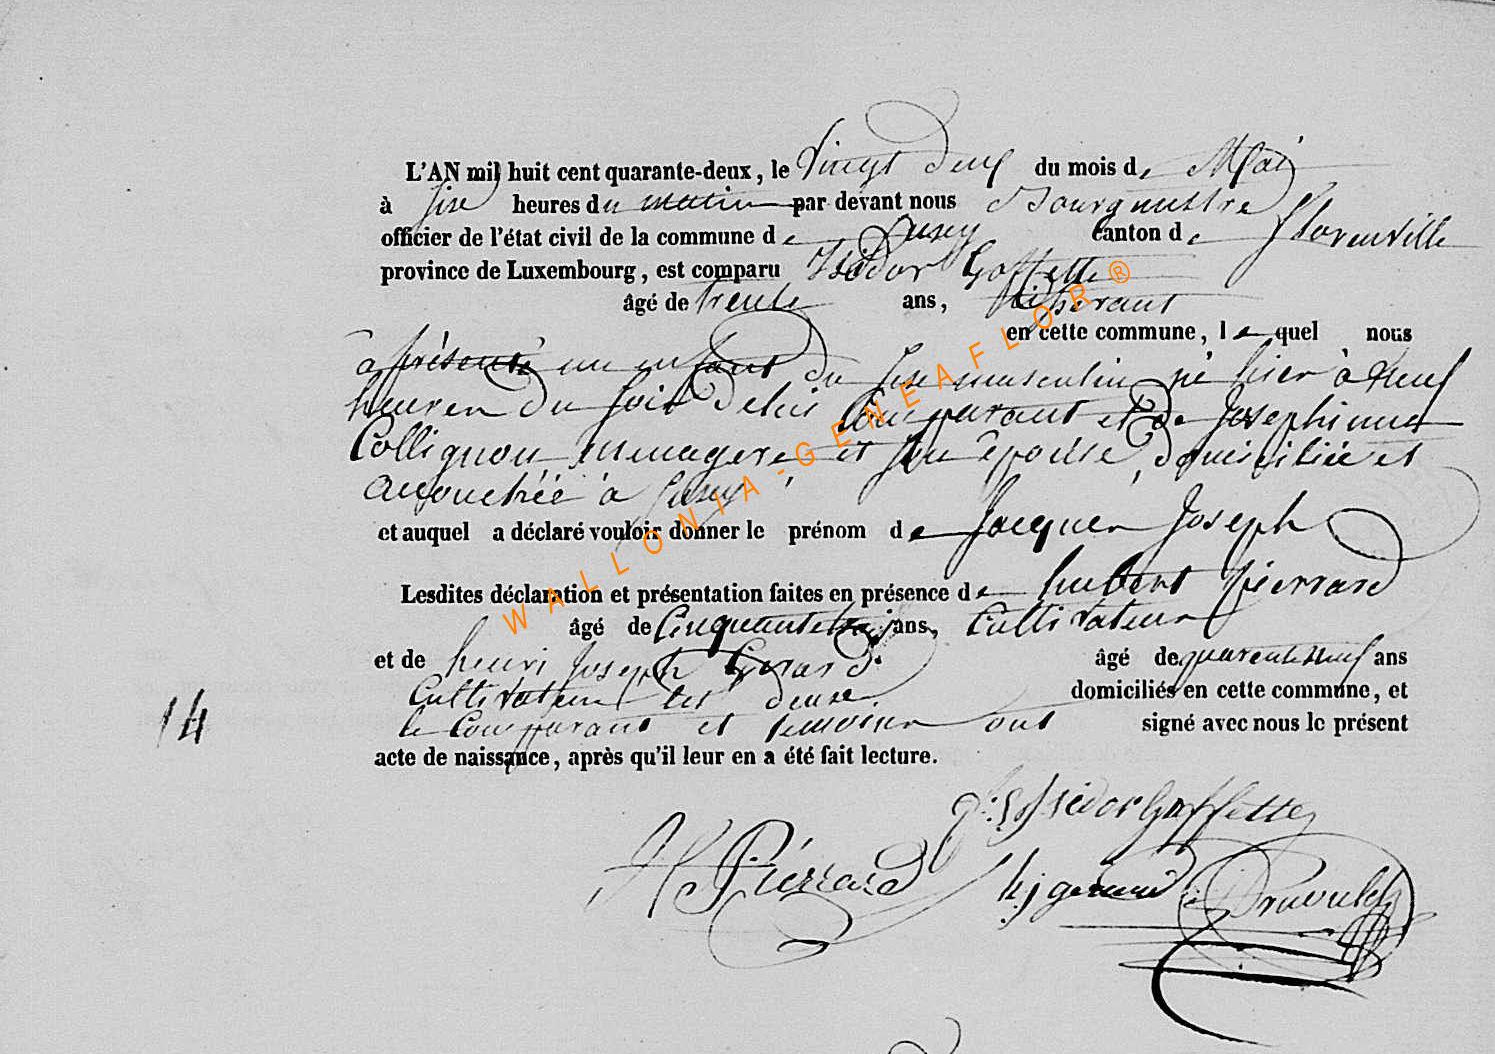 L'AN mil huit cent quarante-deux, le vingt deux du mois de Mai
à six heures du matin par devant nous Bourguemestre
officier de l'état civil de la commune de canton de Florenville
province de Luxembourg, est comparu Isidor Goffette
âgé de trente ans, tisserant
en cette commune, lequel nous
a présenté un enfant du sexe masculin né hier à neuf
heures du soir de lui comparant et de Josephinne
Collignon menagere et son épouse, domiciliée et
accouchée à
et auquel a déclaré vouloir donner le prénom de Jacques Joseph
Lesdites déclaration et présentation faites en présence de hubert Pierrard
âgé de ans, Cultivateur
et de henri Joseph Gerard âgé de quarente neuf ans
Cultivateur les deux domiciliés en cette commune, et
le Comparant et temoins ont signé avec nous le présent
14
acte de naissance, après qu'il leur en a été fait lecture.
Isidor Goffette
H Piérrard
h j gerard
WALLONIA-GENEAFLOR®